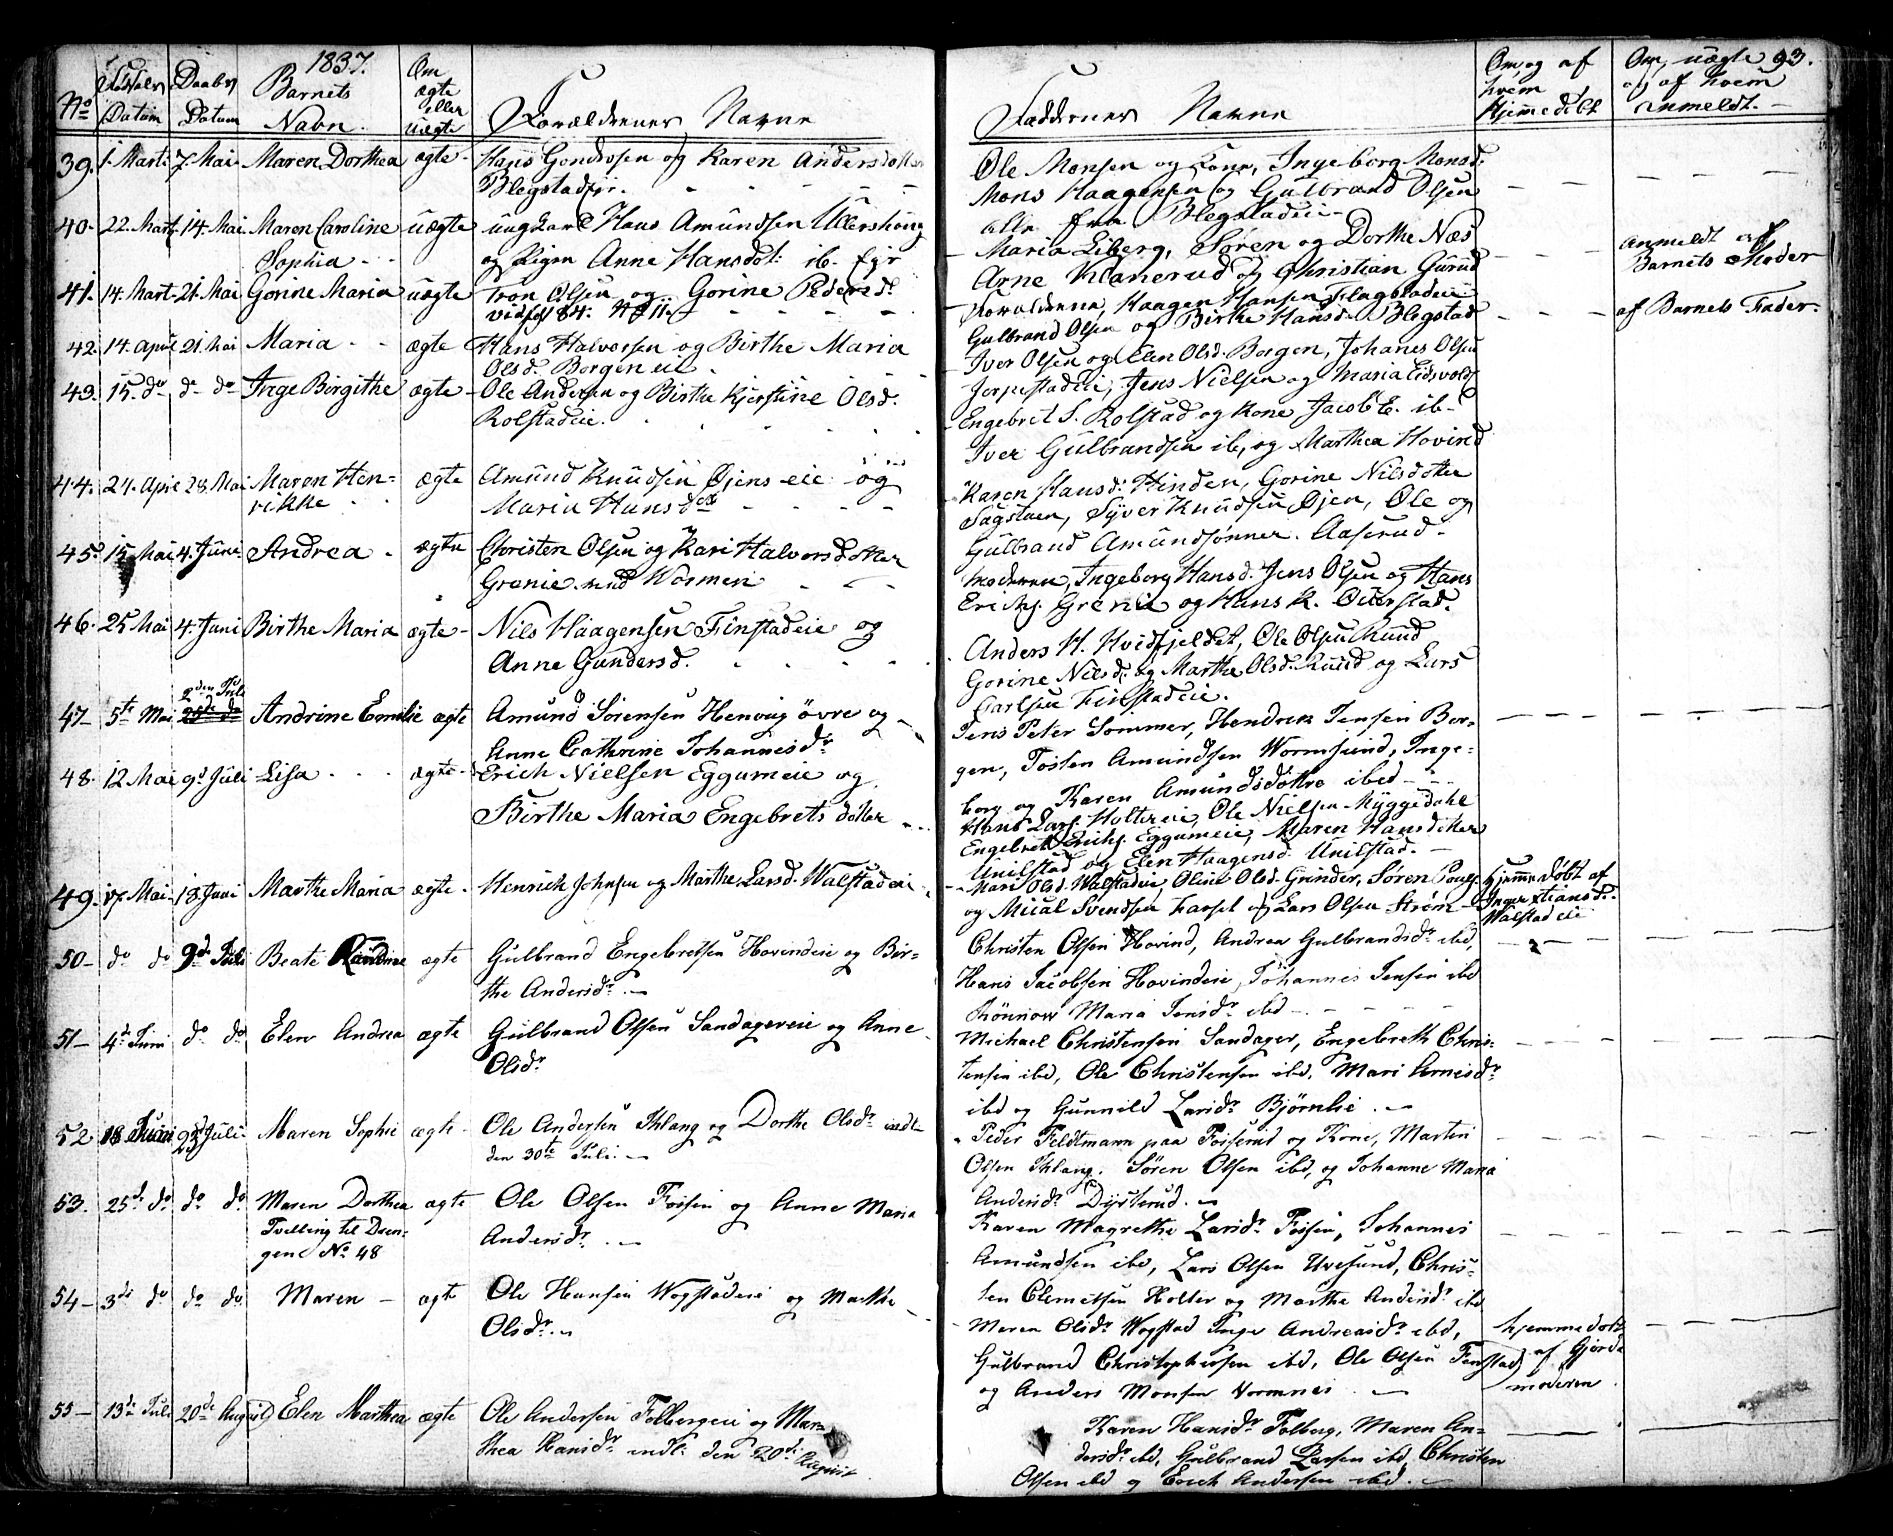 1837.
No
Fødsels Datum
Daabs Datum
Barnets Navn.
Om ægte eller uægte
Forældrenes Navne
Faddernes Navne
Om og af hvem Hjemmedøbt
Om uægte og af hvem anmeldt. -
93.
39. 1. Marts 7. Mai Maren Dorthea ægte - Hans Gundersen og Karen Andersdotter
Blegstadejr.
Ole Monsen og Kone, Ingeborg Monsd.
Mons Haagensen og Gulbrand Olsen
alle fra Blegstadeie -
40. 22. Mart 14. Mai Maren Caroline uægte ungkarl Hans Amundsen Ullershoug
Sophia - - og Pigen Anne Hansdot: ib. Ejr
Maria Liberg, Søren og Dorthe Næs
Arne Klanerud og Christian Gurud
Anmeldt af
Barnets Moder
41. 14. Mart 21. Mai Gorine Maria uægte Tron Olsen og Gorine Pedersd.
Forældrene, Haagen Hansen Flagstadeie
Gulbrand Olsen og Birthe Hansd. Blegstad
af Barnets Fader.
42. 14. April 21. Mai Maria - - ægte Hans Halvorsen og Birthe Maria
Olsd. Borgen eie
Iver Olsen og Elen Olsd. Borgen, Johanes Olsen
Jorpestadeie, Jens Nielsen og Maria Eidsvold
43. 15. do do do Inge Birgithe ægte - Ole Andersen og Birthe Kjerstine Olsd.
Rolstadeie.
Engebret S. Rolstad og Kone Jacob E. ib -
Iver Gulbrandsen ib, og Marthea Hovind
44. 24. April 28. Mai Maren Hen-
rikke - - ægte Amund Knudsen Øjens eie og
Maria Hansdot
Karen Hansd. Hinden, Gorine Nilsdotter
Sagstuen, Syver Knudsen Øjen, Ole og
Gulbrand Amundsønner. Aaserud -
45. 15 Mai 4. Juni Andrea - ægte Christen Olsen og Kari Halvorsdotter
Grenie med Wormen
Moderen, Ingeborg Hansd. Jens Olsen og Hans
Erichs. Grenie og Hans K. Otterstad.
46. 25 Mai 4. Juni Birthe Maria ægte - Nils Haagensen Finstadeie og
Anne Gundersd.
Anders H. Hvidfjeldet, Ole Olsen Ruud
Gorine Nilsd. og Marthe Olsd. Ruud og Lars
Carlsen Finstadeie.
47 - 5te Mai 2den Juli Andrine Emilie ægte Amund Sørensen Henoug øvre og
Anne Cathrine Johannesdr
Jens Peter Sommer, Hendrik Jensen Bor-
gen, Tosten Amundsen Wormsund, Inge-
borg og Karen Amundsdøttre ibed -
48. 12 Mai 9d Juli Lisa - - - ægte - Erich Nielsen Eggumeie og
Birthe Maria Engebrets dotter
Hans Lars. Holtereie, Ole Nielsen Myggedahl
Engebret Erichs. Eggumeie, Maren Hansdotter
Unilstad og Elen Haagensd. Unilstad. -
49. 17 Mai - 18. Juni Marthe Maria ægte - Henrich Johnsen og Marthe Larsd. Walstadeie
Mari Olsd. Walstadeie, Oline Olsd. Grinder, Søren Pouls.
og Micael Svendsen Farsel og Lars Olsen Strøm -
Hjemmedøbt af
Inger Xtiansd.
Walstadeie
50 - do do 9de Juli Beate Randine ægte Gulbrand Engebretsen Hovindeie og Bir-
the Andersdr. -
Christen Olsen Hovind, Andrea Gulbrandsdr ibd,
Hans Jacobsen Hovindeie, Johannes Jensen ibd
Rönnow Maria Jensdr ibd -
51 - 4de Juni do do Elen Andrea ægte Gulbrand Olsen Sandagereie og Anne
Olsdr
Michael Christensen Sandager, Engebreth Chris-
tensen ibd, Ole Christensen ibd, Mari Arnesdr
ibd og Gunnild Larsdr Bjørnlie. -
52 18 Juni 9d Juli Maren Sophie ægte - Ole Andersen Ihlang og Dorthe Olsdr indl
den 30te Juli -
Peder Feldtmann paa Foiserud og Kone, Martin
Olsen Ihlang. Søren Olsen ibd, og Johanne Maria
Andersdr Dysterud. -
53. 25de do do do Maren Dorthea ægte Ole Olsen Fossen og Anne Maria
Tvilling til Dren-
gene No 48
Andersdr. -
Karen Magrethe Larsdr Fossen, Johannes
Amundsen ibd, Lars Olsen Uvesund, Chris-
ten Clemetsen Holter og Marthe Andersdr ibd
54 - 3de do do do Maren - ægte Ole Hansen Wogstadeie og Marthe
Olsdr. -
Maren Olsdr Wogstad Inge Andreasdr ibd,
Gulbrand Christophersen ibd, Ole Olsen Finstad
og Anders Monsen Vormnes. -
hjemmedøbt
af Gjorde
moderen.
55 - 13de Juli 20de August Elen Marthea ægte Ole Andersen Folbergeie og Mar-
thea Hansdr indl: den 20de August
Karen Hansdr Folberg, Maren An-
dersdr ibd, Gulbrand Larsen ibd, Christen
Olsen ibd og Erich Andersen ibd. -